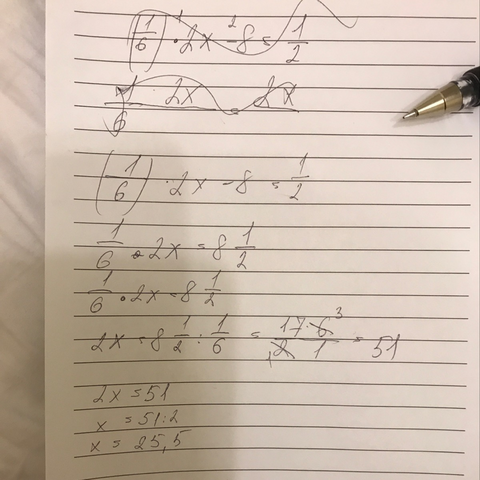 (1/6) · 2x - 8 = 1/2
1/6 2x · 2x
(1/6) · 2x - 8 = 1/2
1/6 · 2x = 8 1/2
1/6 · 2x = 8 1/2
2x = 8 1/2 : 1/6 = 17·6 3/1 2 1 = 51
2x = 51
x = 51:2
x = 25,5